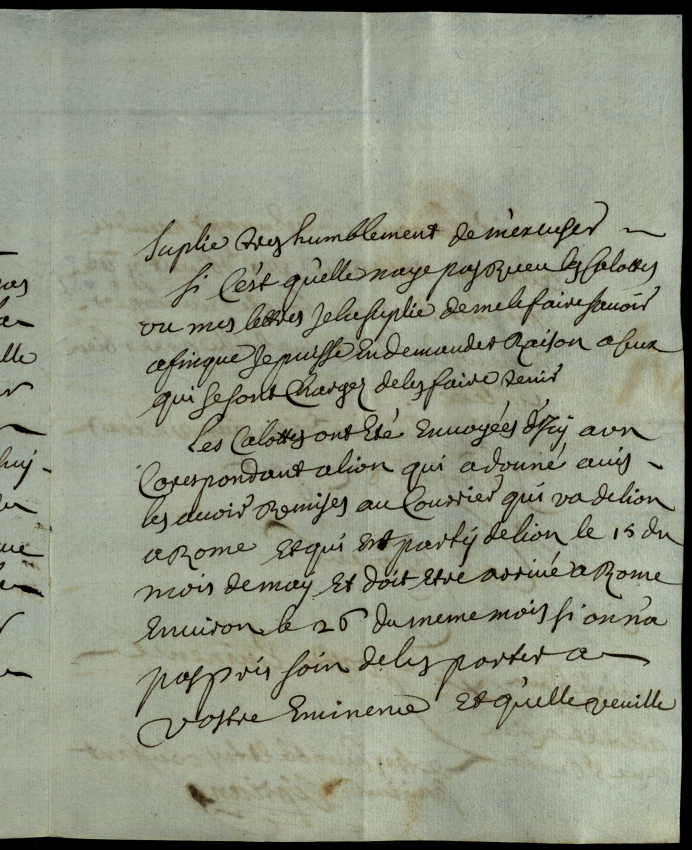 suplie tres humblement de m'excuser
si C'est qu'elle naye pas Receu les Calottes
ou mes lettres Je la suplie de me le faire scavoir
afin que Je puisse En demander Raison a ceux
qui se sont Chargez de les faire tenir
Les Calottes ont Eté Envoyées d'Icy a un
Corespondant a lion qui a donné avis
les avoir Remises au Courrier qui va de lion
a Rome Et qui Est party de lion le 15 du
mois de may Et doit Etre arrivé a Rome
Environ le 26 du meme mois si on n'a
pas pris soin de les porter a
Vostre Eminence Et qu'elle veuille